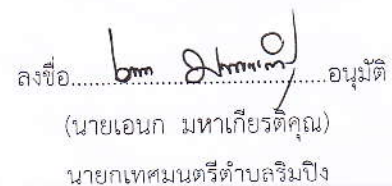 ลงชื่อ.......................................อนุมัติ
(นายเอนก มหาเกียรติคุณ)
นายกเทศมนตรีตำบลริมปิง